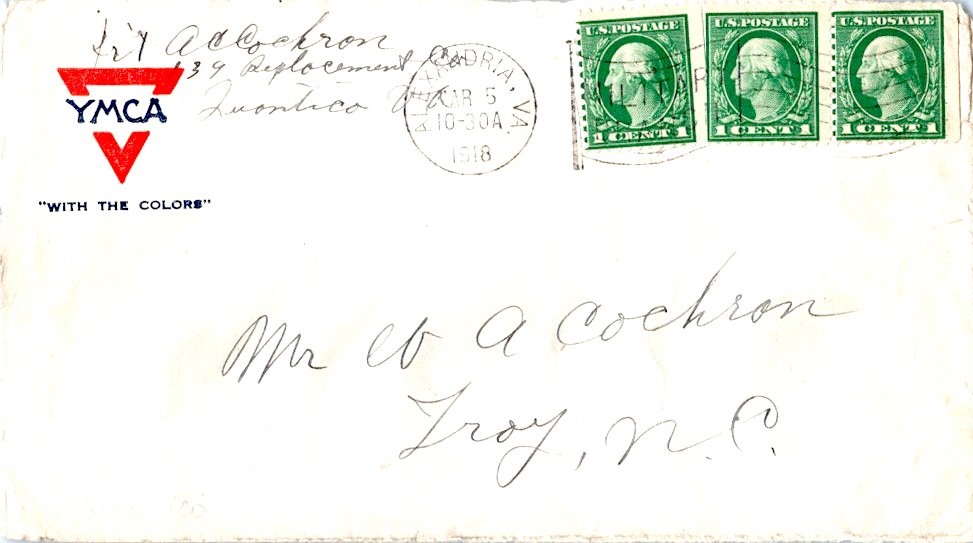 Pvt A C Cochron
139 Replacement Co
Quantico Va
YMCA
"WITH THE COLORS"
ALEXANDRIA, VA.
MAR 5
10-30A
1918
MILITARY
U.S. POSTAGE
1 CENT 1
U.S. POSTAGE
1 CENT 1
U.S. POSTAGE
1 CENT 1
Mr W A Cochron
Troy, N. C.